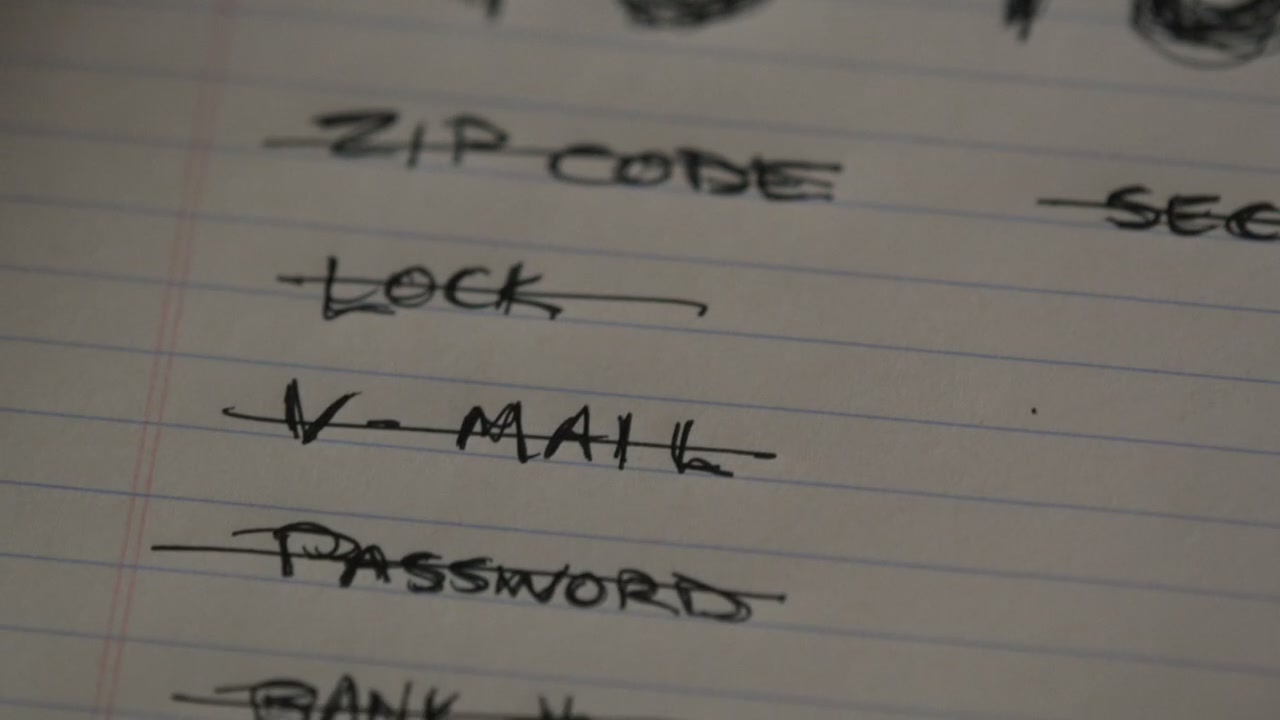 ZIP CODE
SEC
LOCK
V-MAIL
PASSWORD
BANK